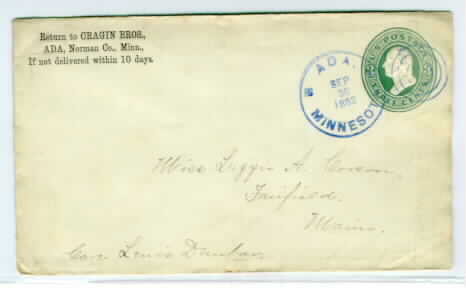 Return to CRAGIN BROS.,
ADA, Norman Co., Minn.,
If not delivered within 10 days.
U.S. POSTAGE
ADA,
SEP
30
1882
MINNESOTA
Miss Lizzie A.
Fairfield.
Maine.
Care Louis Dunbar